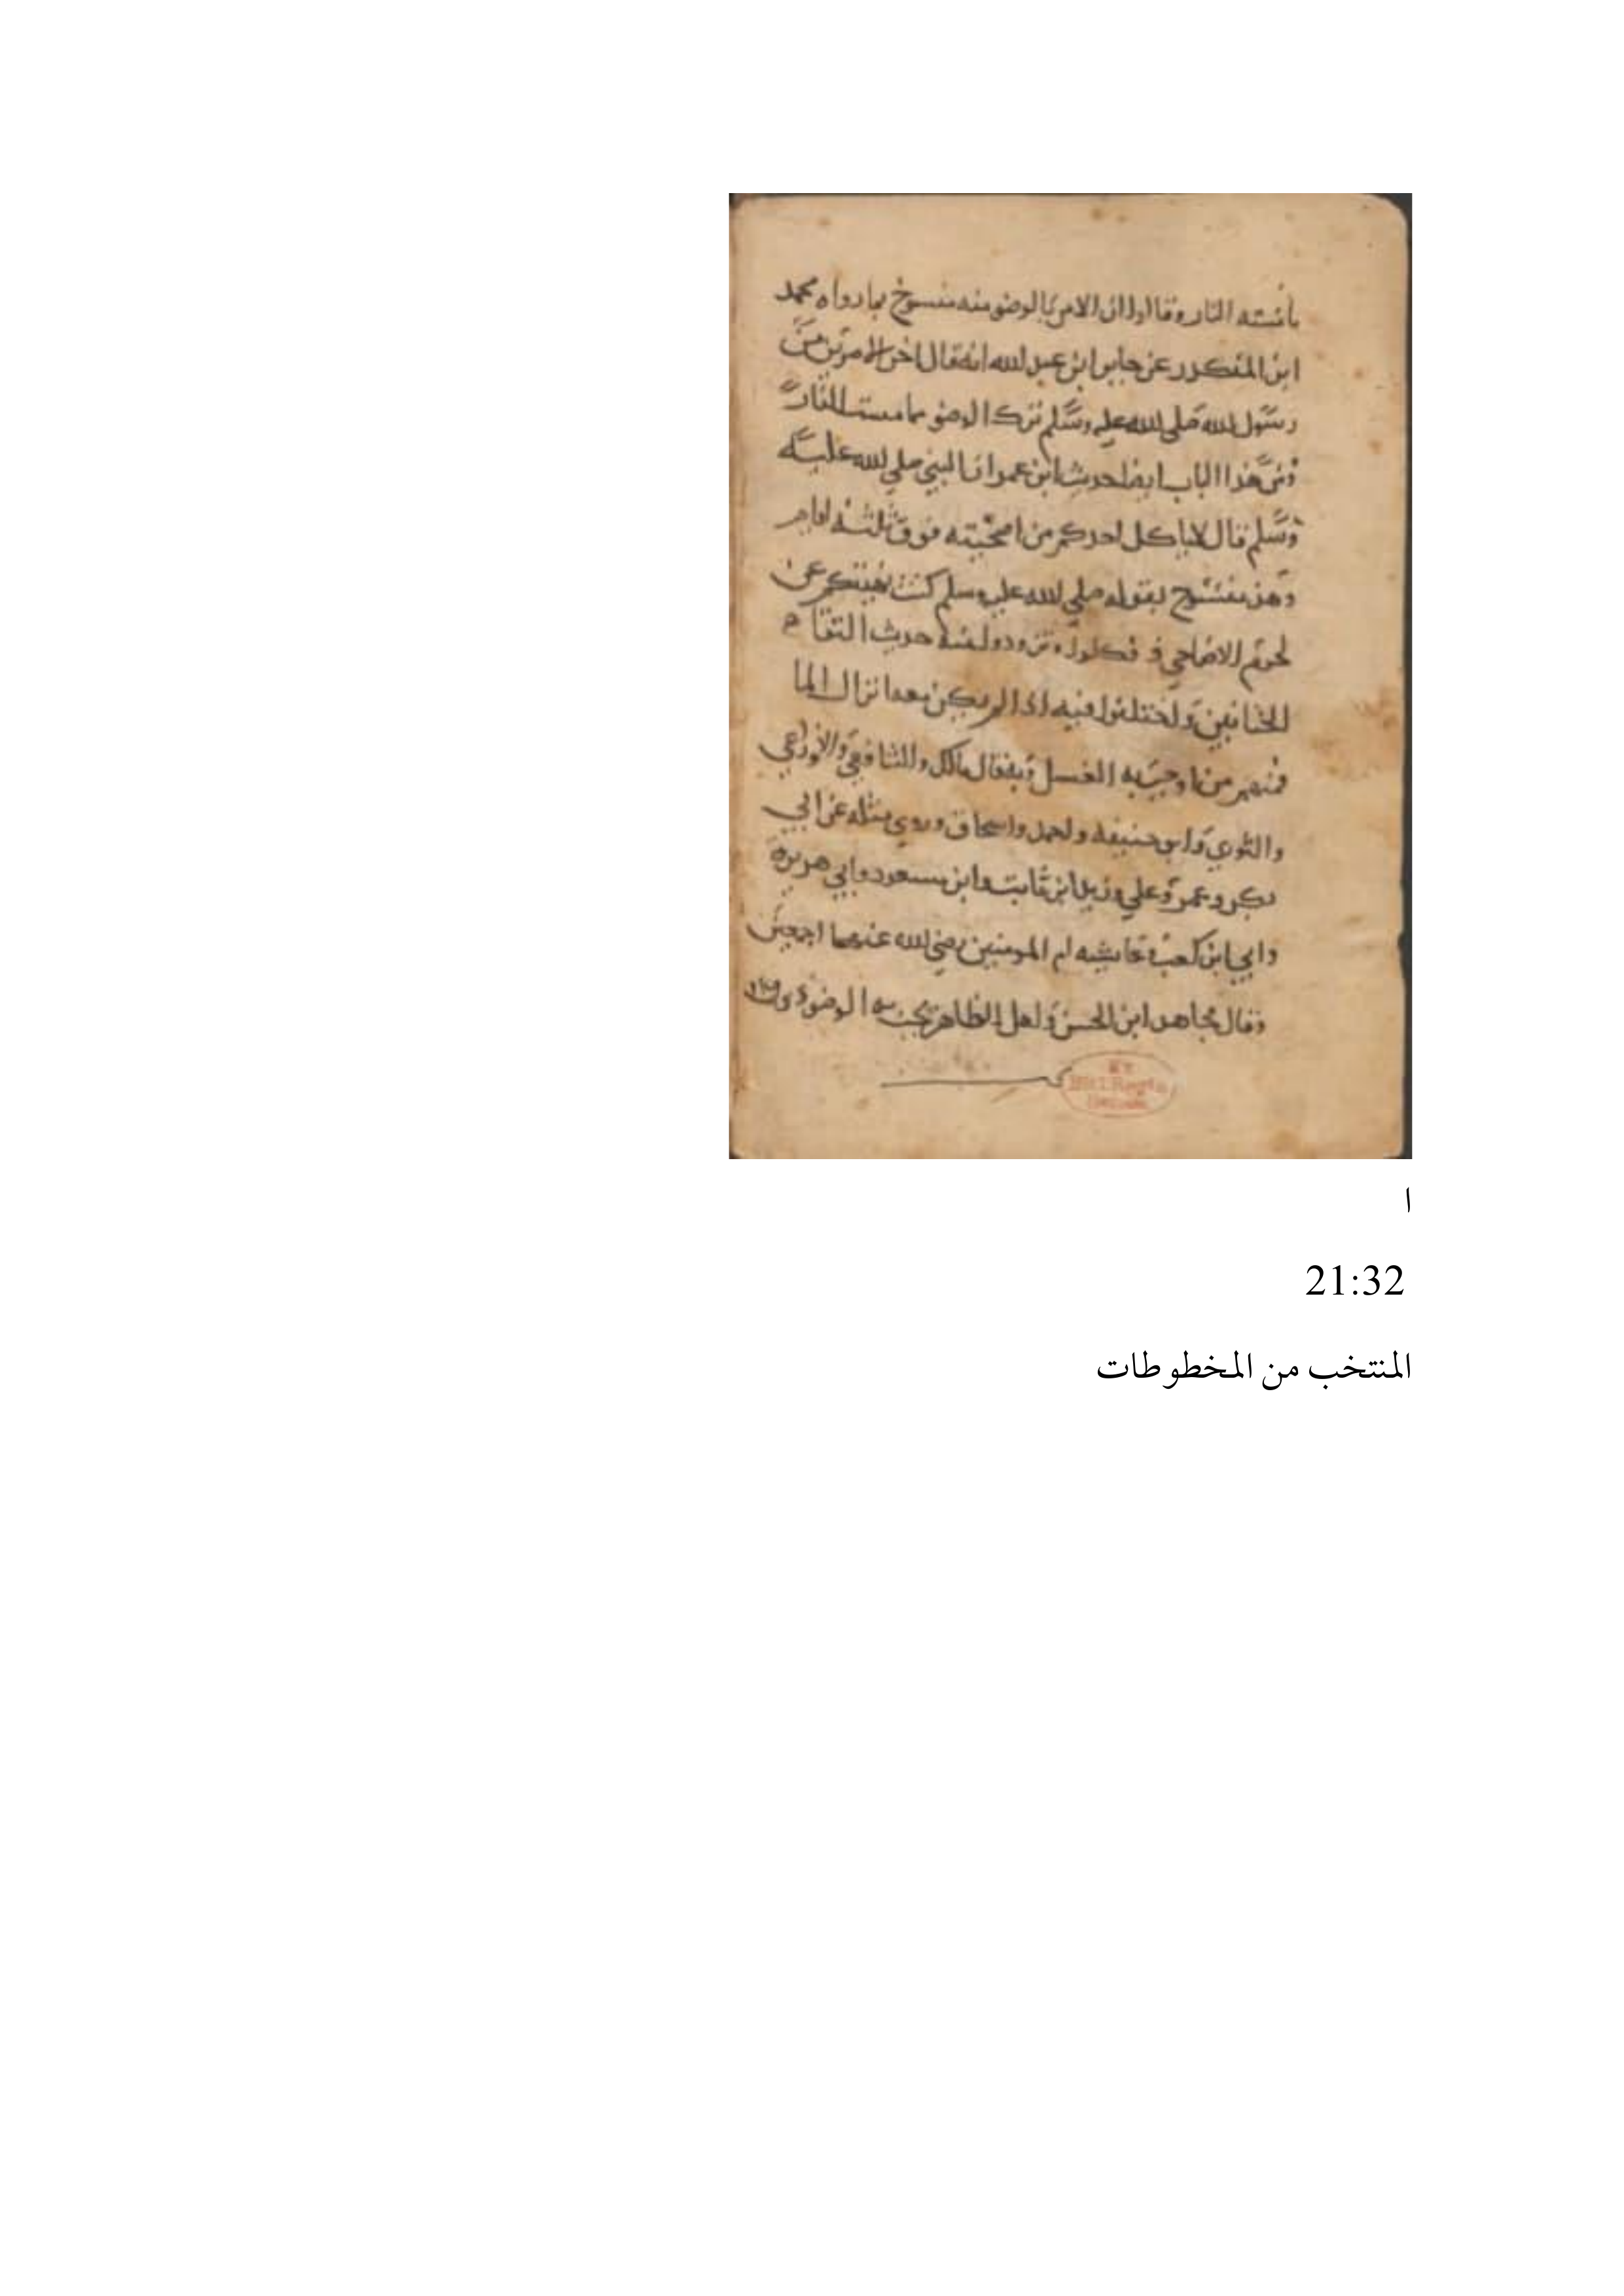 مامسته النار وقالوا ان الامر بالوضو منه منسوخ بما رواه محمد
ابن المنكدر عن جابر ابن عبد الله انه قال اخر الامرين من
رسول الله صلى الله عليه وسلم ترك الوضو مما مست النار
ومن هذا الباب ايضا حديث ابن عمر ان النبي صلي الله عليه
وسلم قال لا ياكل احدكم من اضحيته فوق ثلثة ايام
وهذ منسوخ بقوله صلي الله عليه وسلم كنت نهيتكم عن
لحوم الاضاحي فكلوا وتزودوا حديث التقا
الختانين واختلفوا فيه اذا لم يكن معه انزال الما
فمنهم من اوجب به الغسل وبه قال مالك والشافعي والاوزاعي
والثوري وابو حنيفه واحمد واسحاق وروي مثله عن ابي
بكر وعمر وعلي وزيد ابن ثابت وابن مسعود وابي هريرة
وابي ابن كعب وعايشه ام المومنين رضي الله عنهما اجمعين
وقال مجاهد ابن الحسن واهل الظاهر يجب به الوضو
Bibl. Regia
ا
21:32
المنتخب من المخطوطات